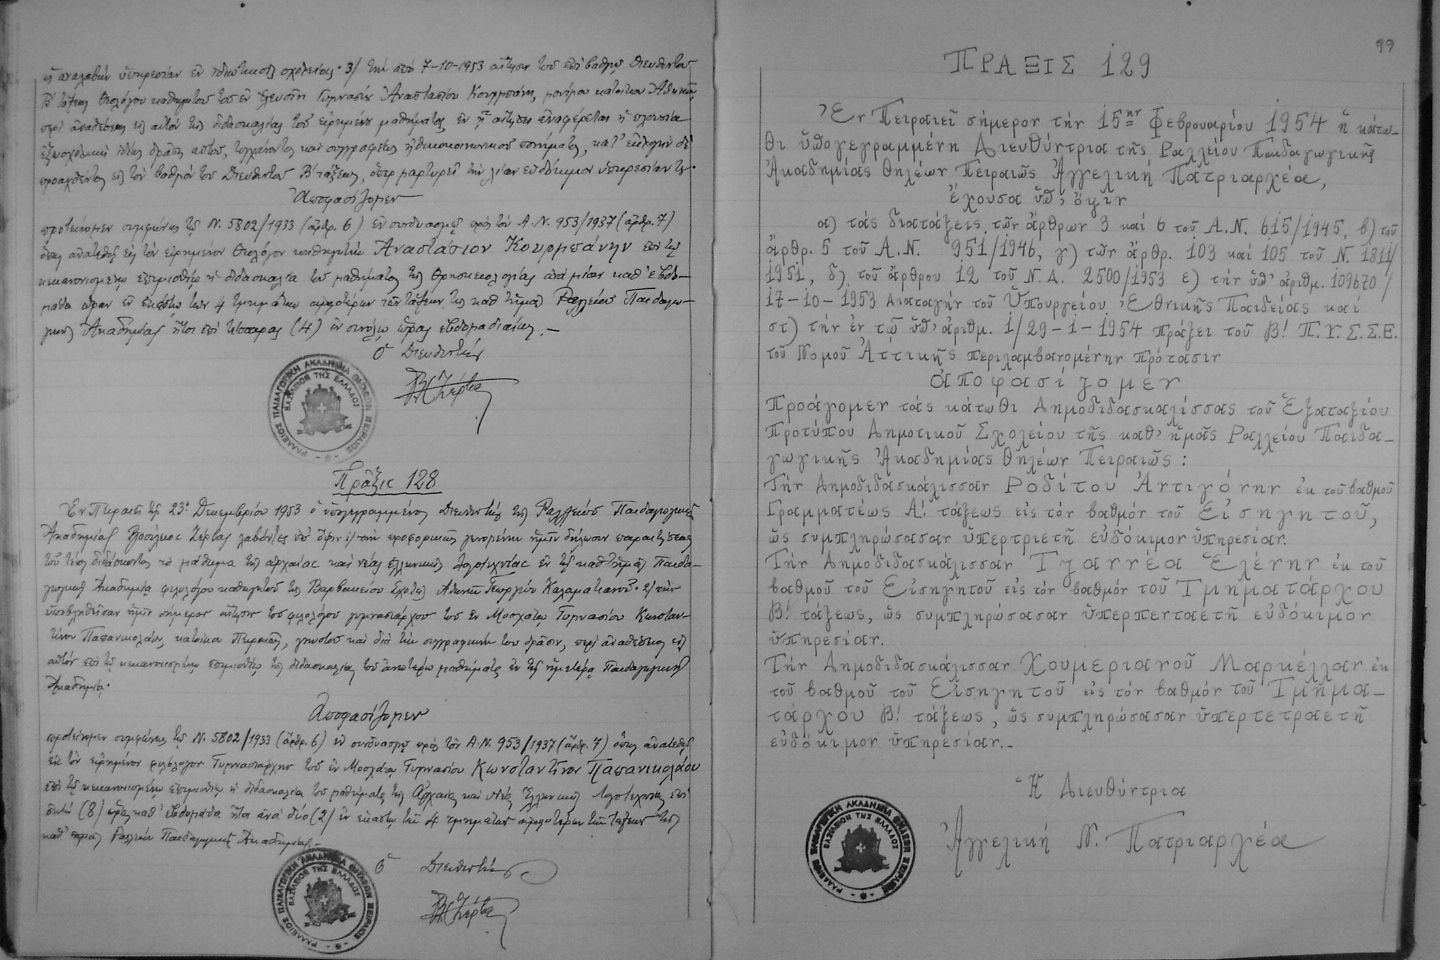 ἢ ἀναλαβὼν ὑπηρεσίαν ἐν ἰδιωτικοῖς σχολείοις· 3/ τὴν ἀπὸ 7-10-1953 αἴτησιν τοῦ ἐπὶ βαθμῷ Διευθυντοῦ
Β' τάξεως Θεολόγου καθηγητοῦ τοῦ ἐν Ἐλευσῖνι Γυμνασίου Ἀναστασίου Κουρμπάνη, μονίμου κατοίκου Ἀθηνῶν,
περὶ ἀναθέσεως εἰς αὐτὸν τῆς διδασκαλίας τοῦ εἰρημένου μαθήματος ἐν ᾗ αἰτήσει ἀναφέρεται ἡ πλουσία
ἐξωσχολικὴ δρᾶσις αὐτοῦ, τυγχάνοντος καὶ συγγραφέως ἠθικοκοινωνικοῦ πονήματος, κατ' ἐκλογὴν δὲ
προαχθέντος εἰς τὸν βαθμὸν τοῦ Διευθυντοῦ Β' τάξεως, ὅπερ μαρτυρεῖ τὴν λίαν εὐδόκιμον ὑπηρεσίαν του·
Ἀποφασίζομεν
προτείνομεν συμφώνως τῷ Ν. 5802/1933 (ἄρθρ. 6) ἐν συνδυασμῷ πρὸς τὸν Α.Ν. 953/1937 (ἄρθρ. 7)
ὅπως ἀνατεθῇ εἰς τὸν εἰρημένον Θεολόγον καθηγητὴν Ἀναστάσιον Κουρμπάνην ἐπὶ τῷ
κεκανονισμένῳ ἐπιμισθίῳ ἡ διδασκαλία τοῦ μαθήματος τῆς Θρησκειολογίας ἀνὰ μίαν καθ' ἑβδο-
μάδα ὥραν ἐν ἑκάστῳ τῶν 4 τμημάτων ἀμφοτέρων τῶν τάξεων τῆς καθ' ἡμᾶς Ραλλείου Παιδαγω-
γικῆς Ἀκαδημίας ἤτοι ἐπὶ τέσσαρας (4) ἐν συνόλῳ ὥρας ἑβδομαδιαίως.–
Ὁ Διευθυντὴς
Β. Ζέρβας
ΡΑΛΛΕΙΟΣ ΠΑΙΔΑΓΩΓΙΚΗ ΑΚΑΔΗΜΙΑ ΘΗΛΕΩΝ ΠΕΙΡΑΙΩΣ
ΒΑΣΙΛΕΙΟΝ ΤΗΣ ΕΛΛΑΔΟΣ
Πρᾶξις 128
Ἐν Πειραιεῖ τῇ 23ῃ Δεκεμβρίου 1953 ὁ ὑπογεγραμμένος Διευθυντὴς τῆς Ραλλείου Παιδαγωγικῆς
Ἀκαδημίας Βασίλειος Ζέρβας λαβόντες ὑπ' ὄψιν 1) τὴν προφορικῶς γενομένην ἡμῖν δήλωσιν παραιτήσεως
τοῦ τέως διδάσκοντος τὸ μάθημα τῆς ἀρχαίας καὶ νέας ἑλληνικῆς λογοτεχνίας ἐν τῇ καθ' ἡμᾶς Παιδα-
γωγικῇ Ἀκαδημίᾳ φιλολόγου καθηγητοῦ τῆς Βαρβακείου Σχολῆς Ἀθηνῶν Γεωργίου Καλαματιανοῦ· 2) τὴν
ὑποβληθεῖσαν ἡμῖν σήμερον αἴτησιν τοῦ φιλολόγου γυμνασιάρχου τοῦ ἐν Μοσχάτῳ Γυμνασίου Κωνσταν-
τίνου Παπανικολάου, κατοίκου Πειραιῶς, γνωστοῦ καὶ διὰ τὴν συγγραφικήν του δρᾶσιν, περὶ ἀναθέσεως εἰς
αὐτὸν ἐπὶ τῷ κεκανονισμένῳ ἐπιμισθίῳ τῆς διδασκαλίας τοῦ ἀνωτέρω μαθήματος ἐν τῇ ἡμετέρᾳ Παιδαγωγικῇ
Ἀκαδημίᾳ·
Ἀποφασίζομεν
προτείνομεν συμφώνως τῷ Ν. 5802/1933 (ἄρθρ. 6) ἐν συνδυασμῷ πρὸς τὸν Α.Ν. 953/1937 (ἄρθρ. 7) ὅπως ἀνατεθῇ
εἰς τὸν εἰρημένον φιλόλογον Γυμνασιάρχην τοῦ ἐν Μοσχάτῳ Γυμνασίου Κωνσταντῖνον Παπανικολάου
ἐπὶ τῷ κεκανονισμένῳ ἐπιμισθίῳ ἡ διδασκαλία τοῦ μαθήματος τῆς Ἀρχαίας καὶ Νέας Ἑλληνικῆς Λογοτεχνίας ἐπὶ
ὀκτὼ (8) ὥρας καθ' ἑβδομάδα ἤτοι ἀνὰ δύο (2) ἐν ἑκάστῳ τῶν 4 τμημάτων ἀμφοτέρων τῶν τάξεων τῆς
καθ' ἡμᾶς Ραλλείου Παιδαγωγικῆς Ἀκαδημίας.–
Ὁ Διευθυντὴς
Β. Ζέρβας
ΡΑΛΛΕΙΟΣ ΠΑΙΔΑΓΩΓΙΚΗ ΑΚΑΔΗΜΙΑ ΘΗΛΕΩΝ ΠΕΙΡΑΙΩΣ
ΒΑΣΙΛΕΙΟΝ ΤΗΣ ΕΛΛΑΔΟΣ
99
ΠΡΑΞΙΣ 129
Ἐν Πειραιεῖ σήμερον τὴν 15ην Φεβρουαρίου 1954 ἡ κάτω-
θι ὑπογεγραμμένη Διευθύντρια τῆς Ραλλείου Παιδαγωγικῆς
Ἀκαδημίας Θηλέων Πειραιῶς Ἀγγελικὴ Πατριαρχέα,
ἔχουσα ὑπ' ὄψιν
α) τὰς διατάξεις τῶν ἄρθρων 3 καὶ 6 τοῦ Α.Ν. 615/1945, β) τοῦ
ἄρθρ. 5 τοῦ Α.Ν. 951/1946, γ) τῶν ἄρθρ. 103 καὶ 105 τοῦ Ν. 1811/
1951, δ) τοῦ ἄρθρου 12 τοῦ Ν.Δ. 2500/1953 ε) τὴν ὑπ' ἀριθμ. 109670/
17-10-1953 Διαταγὴν τοῦ Ὑπουργείου Ἐθνικῆς Παιδείας καὶ
στ) τὴν ἐν τῷ ὑπ' ἀριθμ. 1/29-1-1954 πράξει τοῦ Β! Π.Υ.Σ.Σ.Ε.
τοῦ Νομοῦ Ἀττικῆς περιλαμβανομένην πρότασιν
ἀποφασίζομεν
Προάγομεν τὰς κάτωθι Δημοδιδασκαλίσσας τοῦ Ἑξαταξίου
Προτύπου Δημοτικοῦ Σχολείου τῆς καθ' ἡμᾶς Ραλλείου Παιδα-
γωγικῆς Ἀκαδημίας Θηλέων Πειραιῶς:
Τὴν Δημοδιδασκάλισσαν Ροδίτου Ἀντιγόνην ἐκ τοῦ βαθμοῦ
Γραμματέως Α! τάξεως εἰς τὸν βαθμὸν τοῦ Εἰσηγητοῦ,
ὡς συμπληρώσασαν ὑπερτριετῆ εὐδόκιμον ὑπηρεσίαν.
Τὴν Δημοδιδασκάλισσαν Γιαννέα Ἑλένην ἐκ τοῦ
βαθμοῦ τοῦ Εἰσηγητοῦ εἰς τὸν βαθμὸν τοῦ Τμηματάρχου
Β! τάξεως, ὡς συμπληρώσασαν ὑπερπενταετῆ εὐδόκιμον
ὑπηρεσίαν.
Τὴν Δημοδιδασκάλισσαν Χουμεριανοῦ Μαρκέλλαν ἐκ
τοῦ βαθμοῦ τοῦ Εἰσηγητοῦ εἰς τὸν βαθμὸν τοῦ Τμημα-
τάρχου Β! τάξεως, ὡς συμπληρώσασαν ὑπερτετραετῆ
εὐδόκιμον ὑπηρεσίαν.–
Ἡ Διευθύντρια
Ἀγγελικὴ Ν. Πατριαρχέα
ΡΑΛΛΕΙΟΣ ΠΑΙΔΑΓΩΓΙΚΗ ΑΚΑΔΗΜΙΑ ΘΗΛΕΩΝ ΠΕΙΡΑΙΩΣ
ΒΑΣΙΛΕΙΟΝ ΤΗΣ ΕΛΛΑΔΟΣ